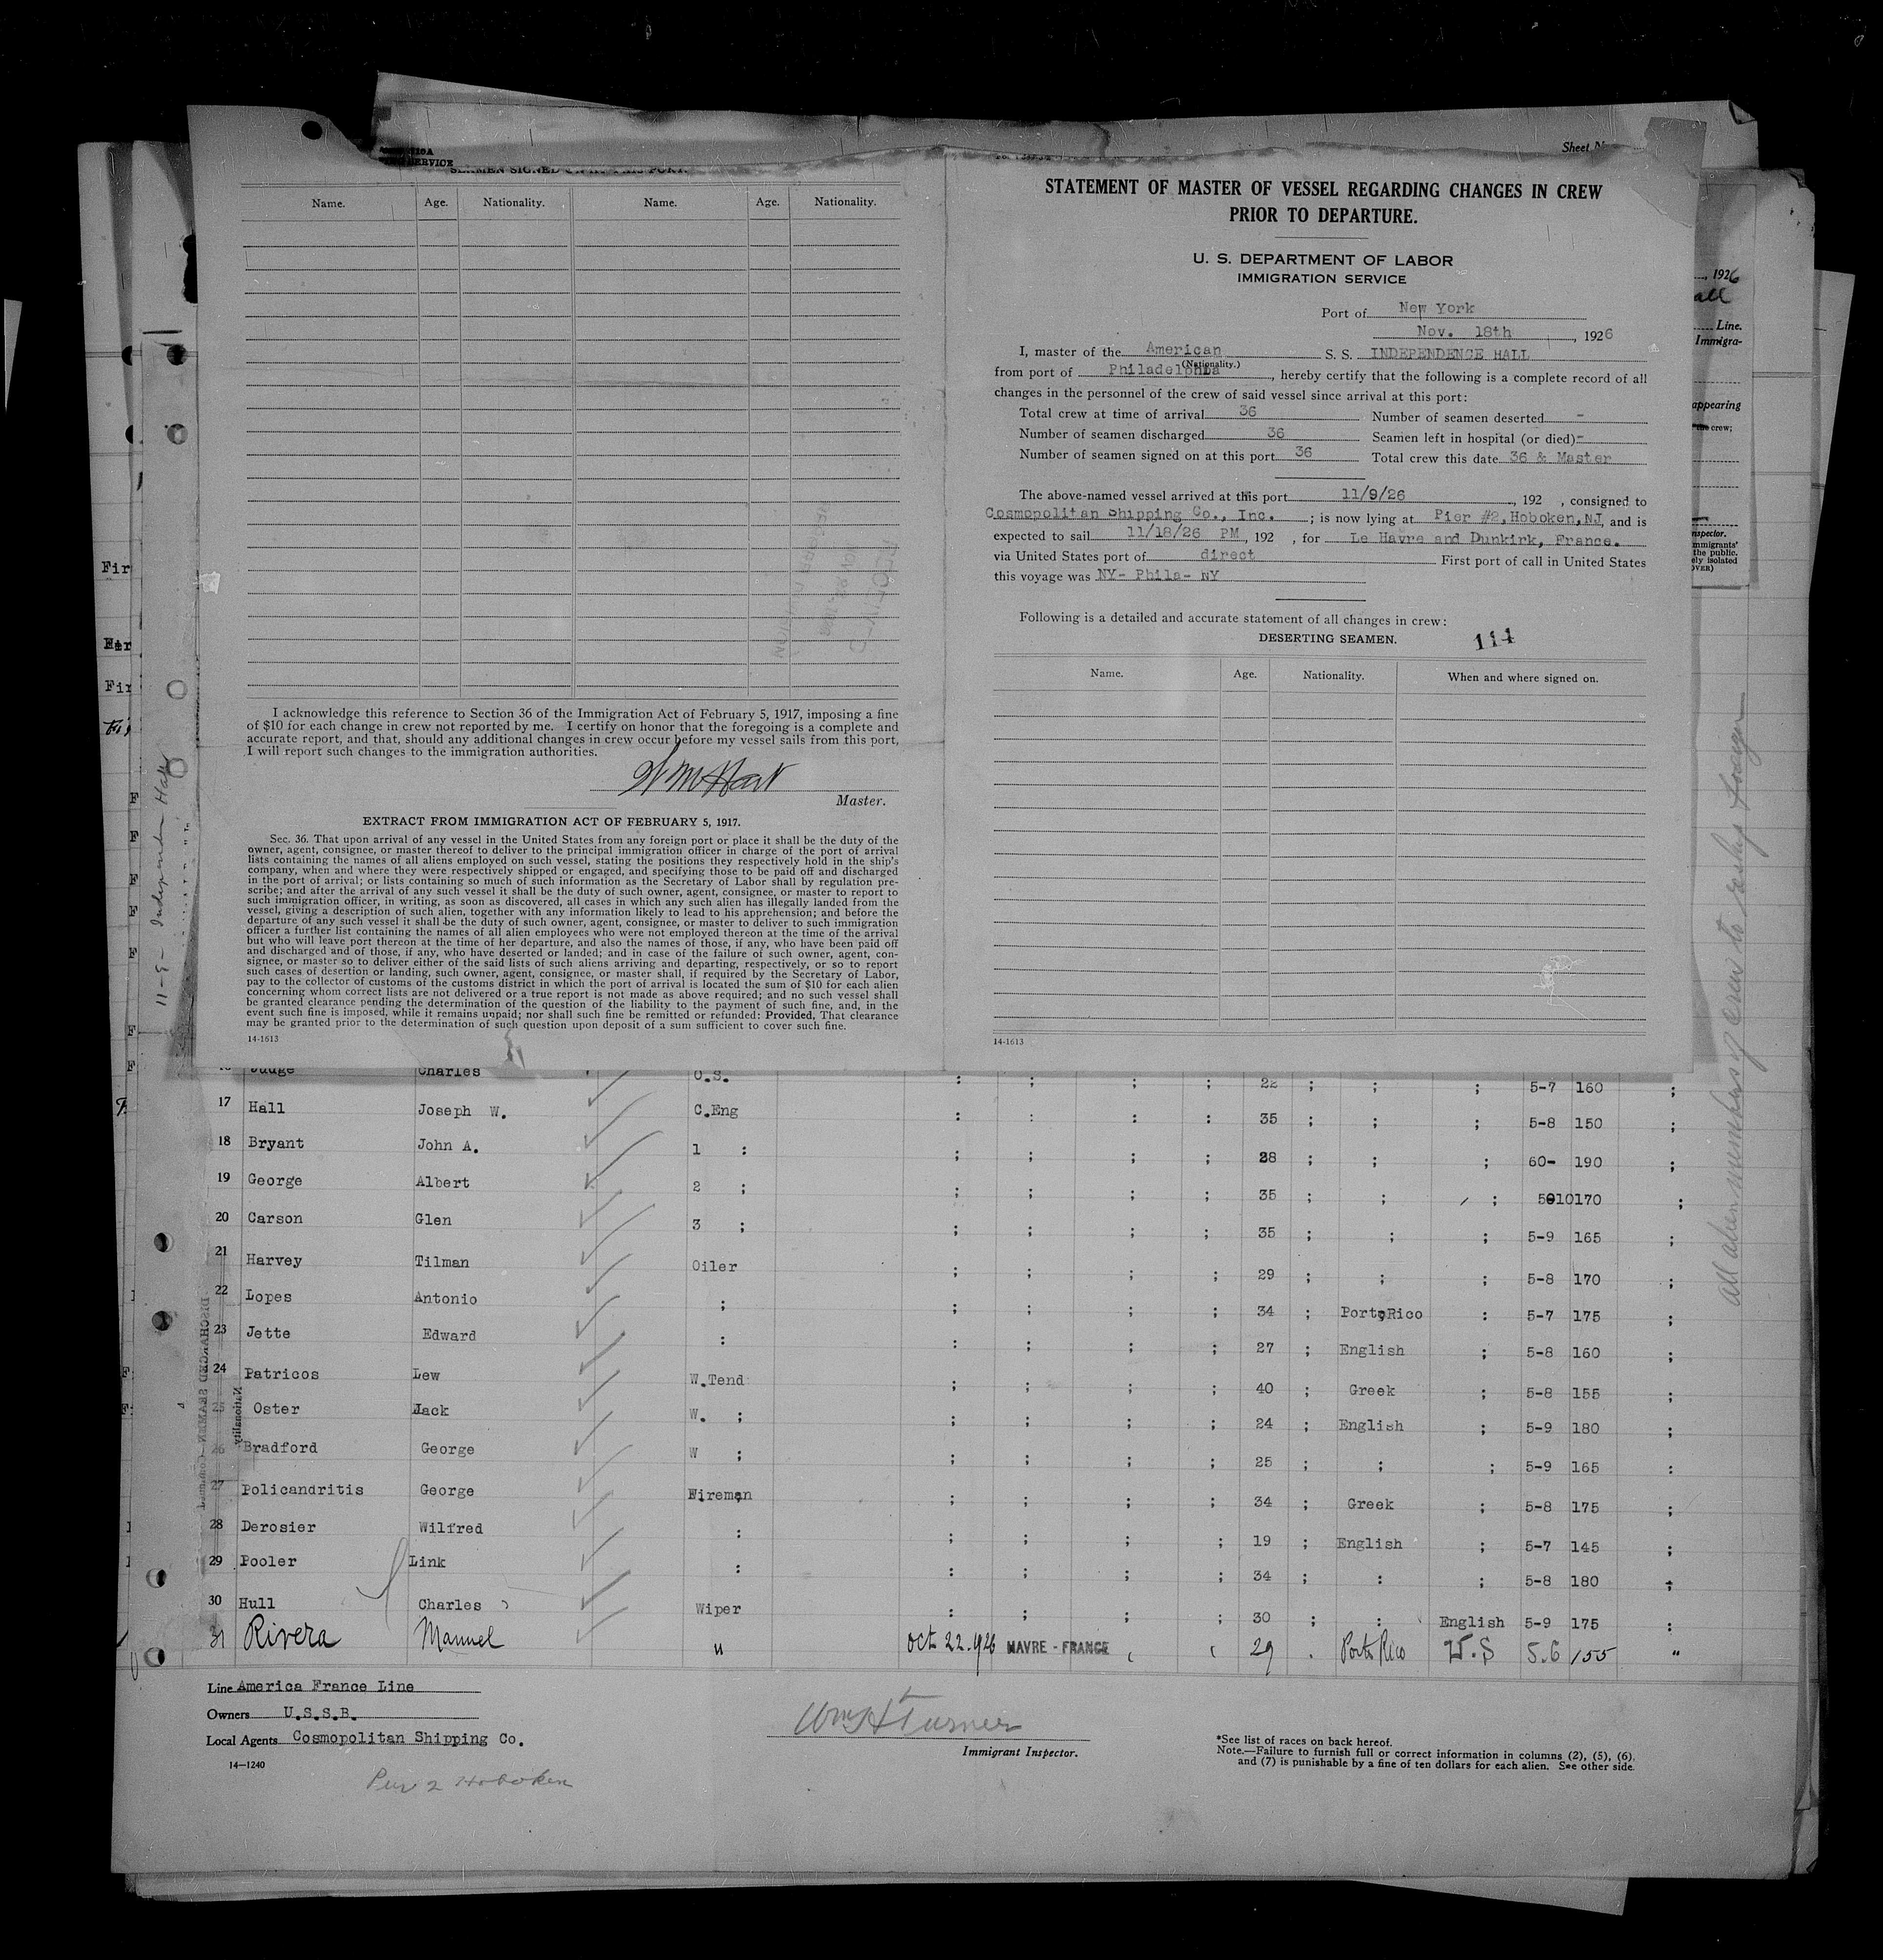 SERVICE
Sheet N
SEAMEN SIGNED ON AT THIS PORT.
Name. Age. Nationality. Name. Age. Nationality.
I acknowledge this reference to Section 36 of the Immigration Act of February 5, 1917, imposing a fine
of $10 for each change in crew not reported by me. I certify on honor that the foregoing is a complete and
accurate report, and that, should any additional changes in crew occur before my vessel sails from this port,
I will report such changes to the immigration authorities.
Master.
EXTRACT FROM IMMIGRATION ACT OF FEBRUARY 5, 1917.
Sec. 36. That upon arrival of any vessel in the United States from any foreign port or place it shall be the duty of the
owner, agent, consignee, or master thereof to deliver to the principal immigration officer in charge of the port of arrival
lists containing the names of all aliens employed on such vessel, stating the positions they respectively hold in the ship's
company, when and where they were respectively shipped or engaged, and specifying those to be paid off and discharged
in the port of arrival; or lists containing so much of such information as the Secretary of Labor shall by regulation pre-
scribe; and after the arrival of any such vessel it shall be the duty of such owner, agent, consignee, or master to report to
such immigration officer, in writing, as soon as discovered, all cases in which any such alien has illegally landed from the
vessel, giving a description of such alien, together with any information likely to lead to his apprehension; and before the
departure of any such vessel it shall be the duty of such owner, agent, consignee, or master to deliver to such immigration
officer a further list containing the names of all alien employees who were not employed thereon at the time of the arrival
but who will leave port thereon at the time of her departure, and also the names of those, if any, who have been paid off
and discharged and of those, if any, who have deserted or landed; and in case of the failure of such owner, agent, con-
signee, or master so to deliver either of the said lists of such aliens arriving and departing, respectively, or so to report
such cases of desertion or landing, such owner, agent, consignee, or master shall, if required by the Secretary of Labor,
pay to the collector of customs of the customs district in which the port of arrival is located the sum of $10 for each alien
concerning whom correct lists are not delivered or a true report is not made as above required; and no such vessel shall
be granted clearance pending the determination of the question of the liability to the payment of such fine, and, in the
event such fine is imposed, while it remains unpaid; nor shall such fine be remitted or refunded: Provided, That clearance
may be granted prior to the determination of such question upon deposit of a sum sufficient to cover such fine.
14-1613
STATEMENT OF MASTER OF VESSEL REGARDING CHANGES IN CREW
PRIOR TO DEPARTURE.
U. S. DEPARTMENT OF LABOR
IMMIGRATION SERVICE
Port of New York
Nov. 18th, 1926
I, master of the American S. S. INDEPENDENCE HALL
(Nationality.)
from port of Philadelphia, hereby certify that the following is a complete record of all
changes in the personnel of the crew of said vessel since arrival at this port:
Total crew at time of arrival 36 Number of seamen deserted -
Number of seamen discharged 36 Seamen left in hospital (or died) -
Number of seamen signed on at this port 36 Total crew this date 36 & Master
The above-named vessel arrived at this port 11/9/26, 192 , consigned to
Cosmopolitan Shipping Co., Inc. ; is now lying at Pier #2, Hoboken, NJ, and is
expected to sail 11/18/26 PM, 192 , for Le Havre and Dunkirk, France.
via United States port of direct First port of call in United States
this voyage was NY- Phila- NY
Following is a detailed and accurate statement of all changes in crew:
DESERTING SEAMEN. 114
Name. Age. Nationality. When and where signed on.
14-1613
, 1926
all
Line.
Immigra-
appearing
the crew;
nspector.
mmigrants'
the public.
ely isolated
OVER)
All alien members of crew to reship foreign
11-9- Independence Hall
Judge Charles O.S. : ; ; ; 22 ; ; ; 5-7 160 ;
17 Hall Joseph W. C.Eng : : : : 35 ; ; ; 5-8 150 ;
18 Bryant John A. 1 : ; ; ; ; 38 ; ; ; 60- 190 ;
19 George Albert 2 ; ; ; ; ; 35 ; ; ; 5010 170 ;
20 Carson Glen 3 ; ; ; ; ; 35 ; ; ; 5-9 165 ;
21 Harvey Tilman Oiler ; ; ; ; 29 ; ; ; 5-8 170 ;
22 Lopes Antonio ; ; ; ; ; 34 ; Porto Rico : 5-7 175 ;
23 Jette Edward : : ; ; ; 27 ; English ; 5-8 160 ;
24 Patricos Lew W.Tend ; ; ; ; 40 ; Greek ; 5-8 155 ;
25 Oster Jack W. ; ; ; ; ; 24 ; English ; 5-9 180 ;
26 Bradford George W ; ; ; ; ; 25 ; ; ; 5-9 165 :
27 Policandritis George Fireman ; ; ; ; 34 ; Greek ; 5-8 175 ;
28 Derosier Wilfred : ; ; ; ; 19 ; English ; 5-7 145 ;
29 Pooler Link : : ; ; ; 34 ; : ; 5-8 180 ;
30 Hull Charles Wiper : ; ; ; 30 ; : English 5-9 175 :
31 Rivera Manuel " Oct 22.1926 HAVRE - FRANCE 29 Porto Rico U.S 5.6 155 "
Line America France Line
Owners U.S.S.B.
Local Agents Cosmopolitan Shipping Co.
14-1240
Pier 2 Hoboken
Wm H Turner
Immigrant Inspector.
*See list of races on back hereof.
Note.—Failure to furnish full or correct information in columns (2), (5), (6),
and (7) is punishable by a fine of ten dollars for each alien. See other side.